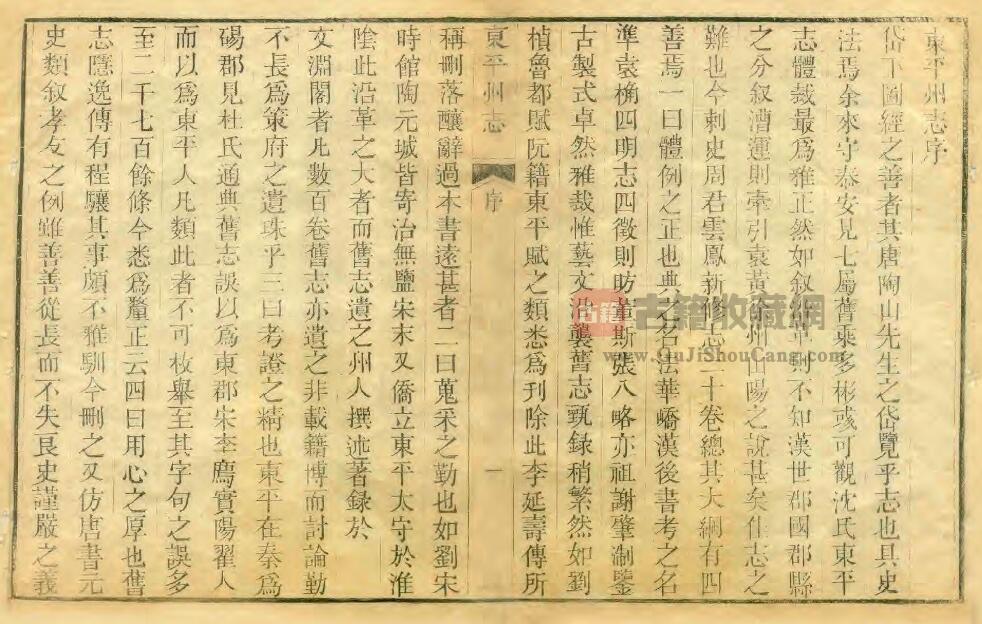 東平州志序
岱下圖經之善者其唐陶山先生之岱覽乎志也具史
法焉余來守泰安見七屬舊乘多彬彧可觀沈氏東平
志體裁最為雅正然如叙沿革則不知漢世郡國郡縣
之分叙漕運則牽引袁黃徐州山陽之說甚矣佳志之
難也今刺史周君雲鳳新修志二十卷總其大綱有四
善焉一曰體例之正也典之名法華嶠漢後書考之名
準袁桷四明志四徵則昉董斯張八略亦祖謝肇淛鑒
古製式卓然雅裁惟藝文沿襲舊志甄録稍繁然如劉
楨魯都賦阮籍東平賦之類悉為刊除此李延壽傳所
東平州志
序
一
稱刪落釀辭過本書遠甚者二曰蒐采之勤也如劉宋
時館陶元城皆寄治無鹽宋末又僑立東平太守於淮
陰此沿革之大者而舊志遺之州人撰述著録於
文淵閣者凡數百卷舊志亦遺之非載籍博而討論勤
不長為策府之遺珠乎三曰考證之精也東平在秦為
碭郡見杜氏通典舊志誤以為東郡宋李廌實陽翟人
而以為東平人凡類此者不可枚舉至其字句之誤多
至二千七百餘條今悉為釐正云四曰用心之厚也舊
志隱逸傳有程驤其事頗不雅馴今刪之又仿唐書元
史類叙孝友之例雖善善從長而不失良史謹嚴之義
古籍
古籍收藏網
www.GuJiShouCang.com